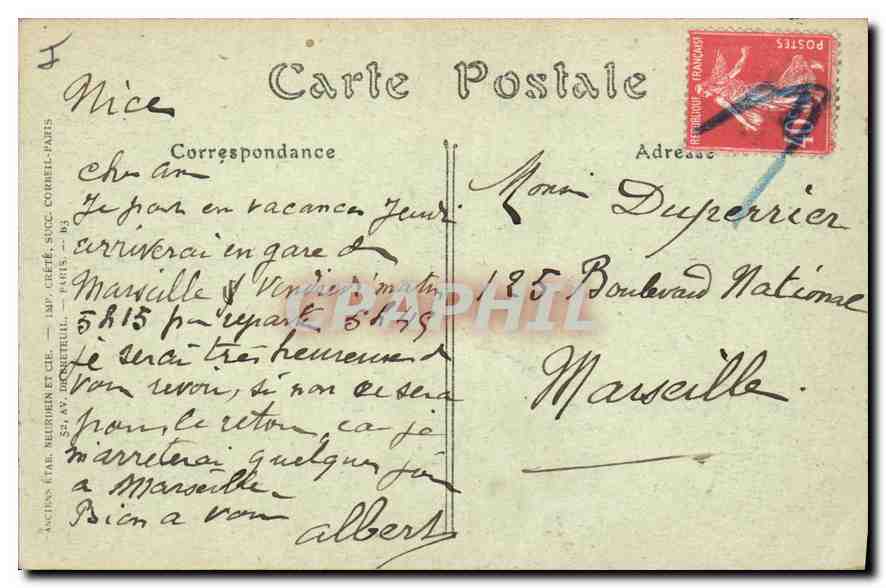 Carte Postale
RÉPUBLIQUE FRANÇAISE
POSTES
Correspondance
Adresse
Nice
Cher ami
Je pars en vacances Jeudi
arriverai en gare de
Marseille Vendredi matin
5h15 pour repartir 5h45
je serai très heureuse de
vous revoir, si non ce sera
pour le retour, car je
m'arreterai quelques jours
a Marseille.
Bien a vous
albert
Duperrier
125 Boulevard National
Marseille.
ANCIENS ÉTAB. NEURDEIN ET CIE. — IMP. CRÉTÉ, SUCC. CORBEIL-PARIS
52, AV. DE BRETEUIL. — PARIS. — B3
CPAPHIL